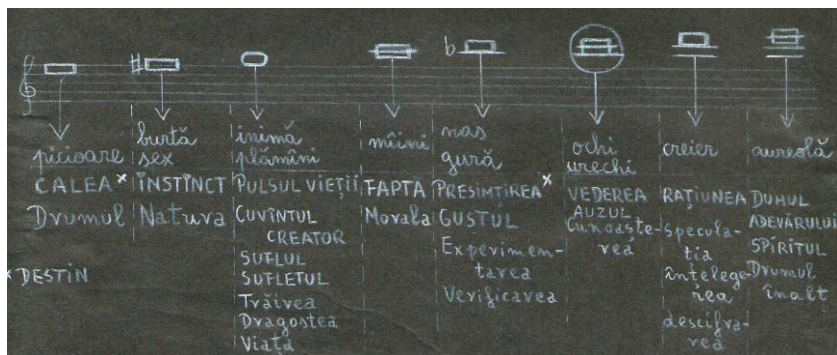 picioare
CALEA*
Drumul
*DESTIN
♯
burtă
sex
INSTINCT
Natura
inimă
plămîni
PULSUL VIEȚII
CUVÎNTUL
CREATOR
SUFLUL
SUFLETUL
Trăirea
Dragostea
Viață
mîini
FAPTA
Morala
b
nas
gură
PRESIMȚIREA*
GUSTUL
Experimen-
tarea
Verificarea
ochi
urechi
VEDEREA
AUZUL
Cunoaște-
rea
creier
RAȚIUNEA
specula-
ția
înțelege-
rea
descifra-
rea
aureolă
DUHUL
ADEVĂRULUI
SPIRITUL
Drumul
înalt